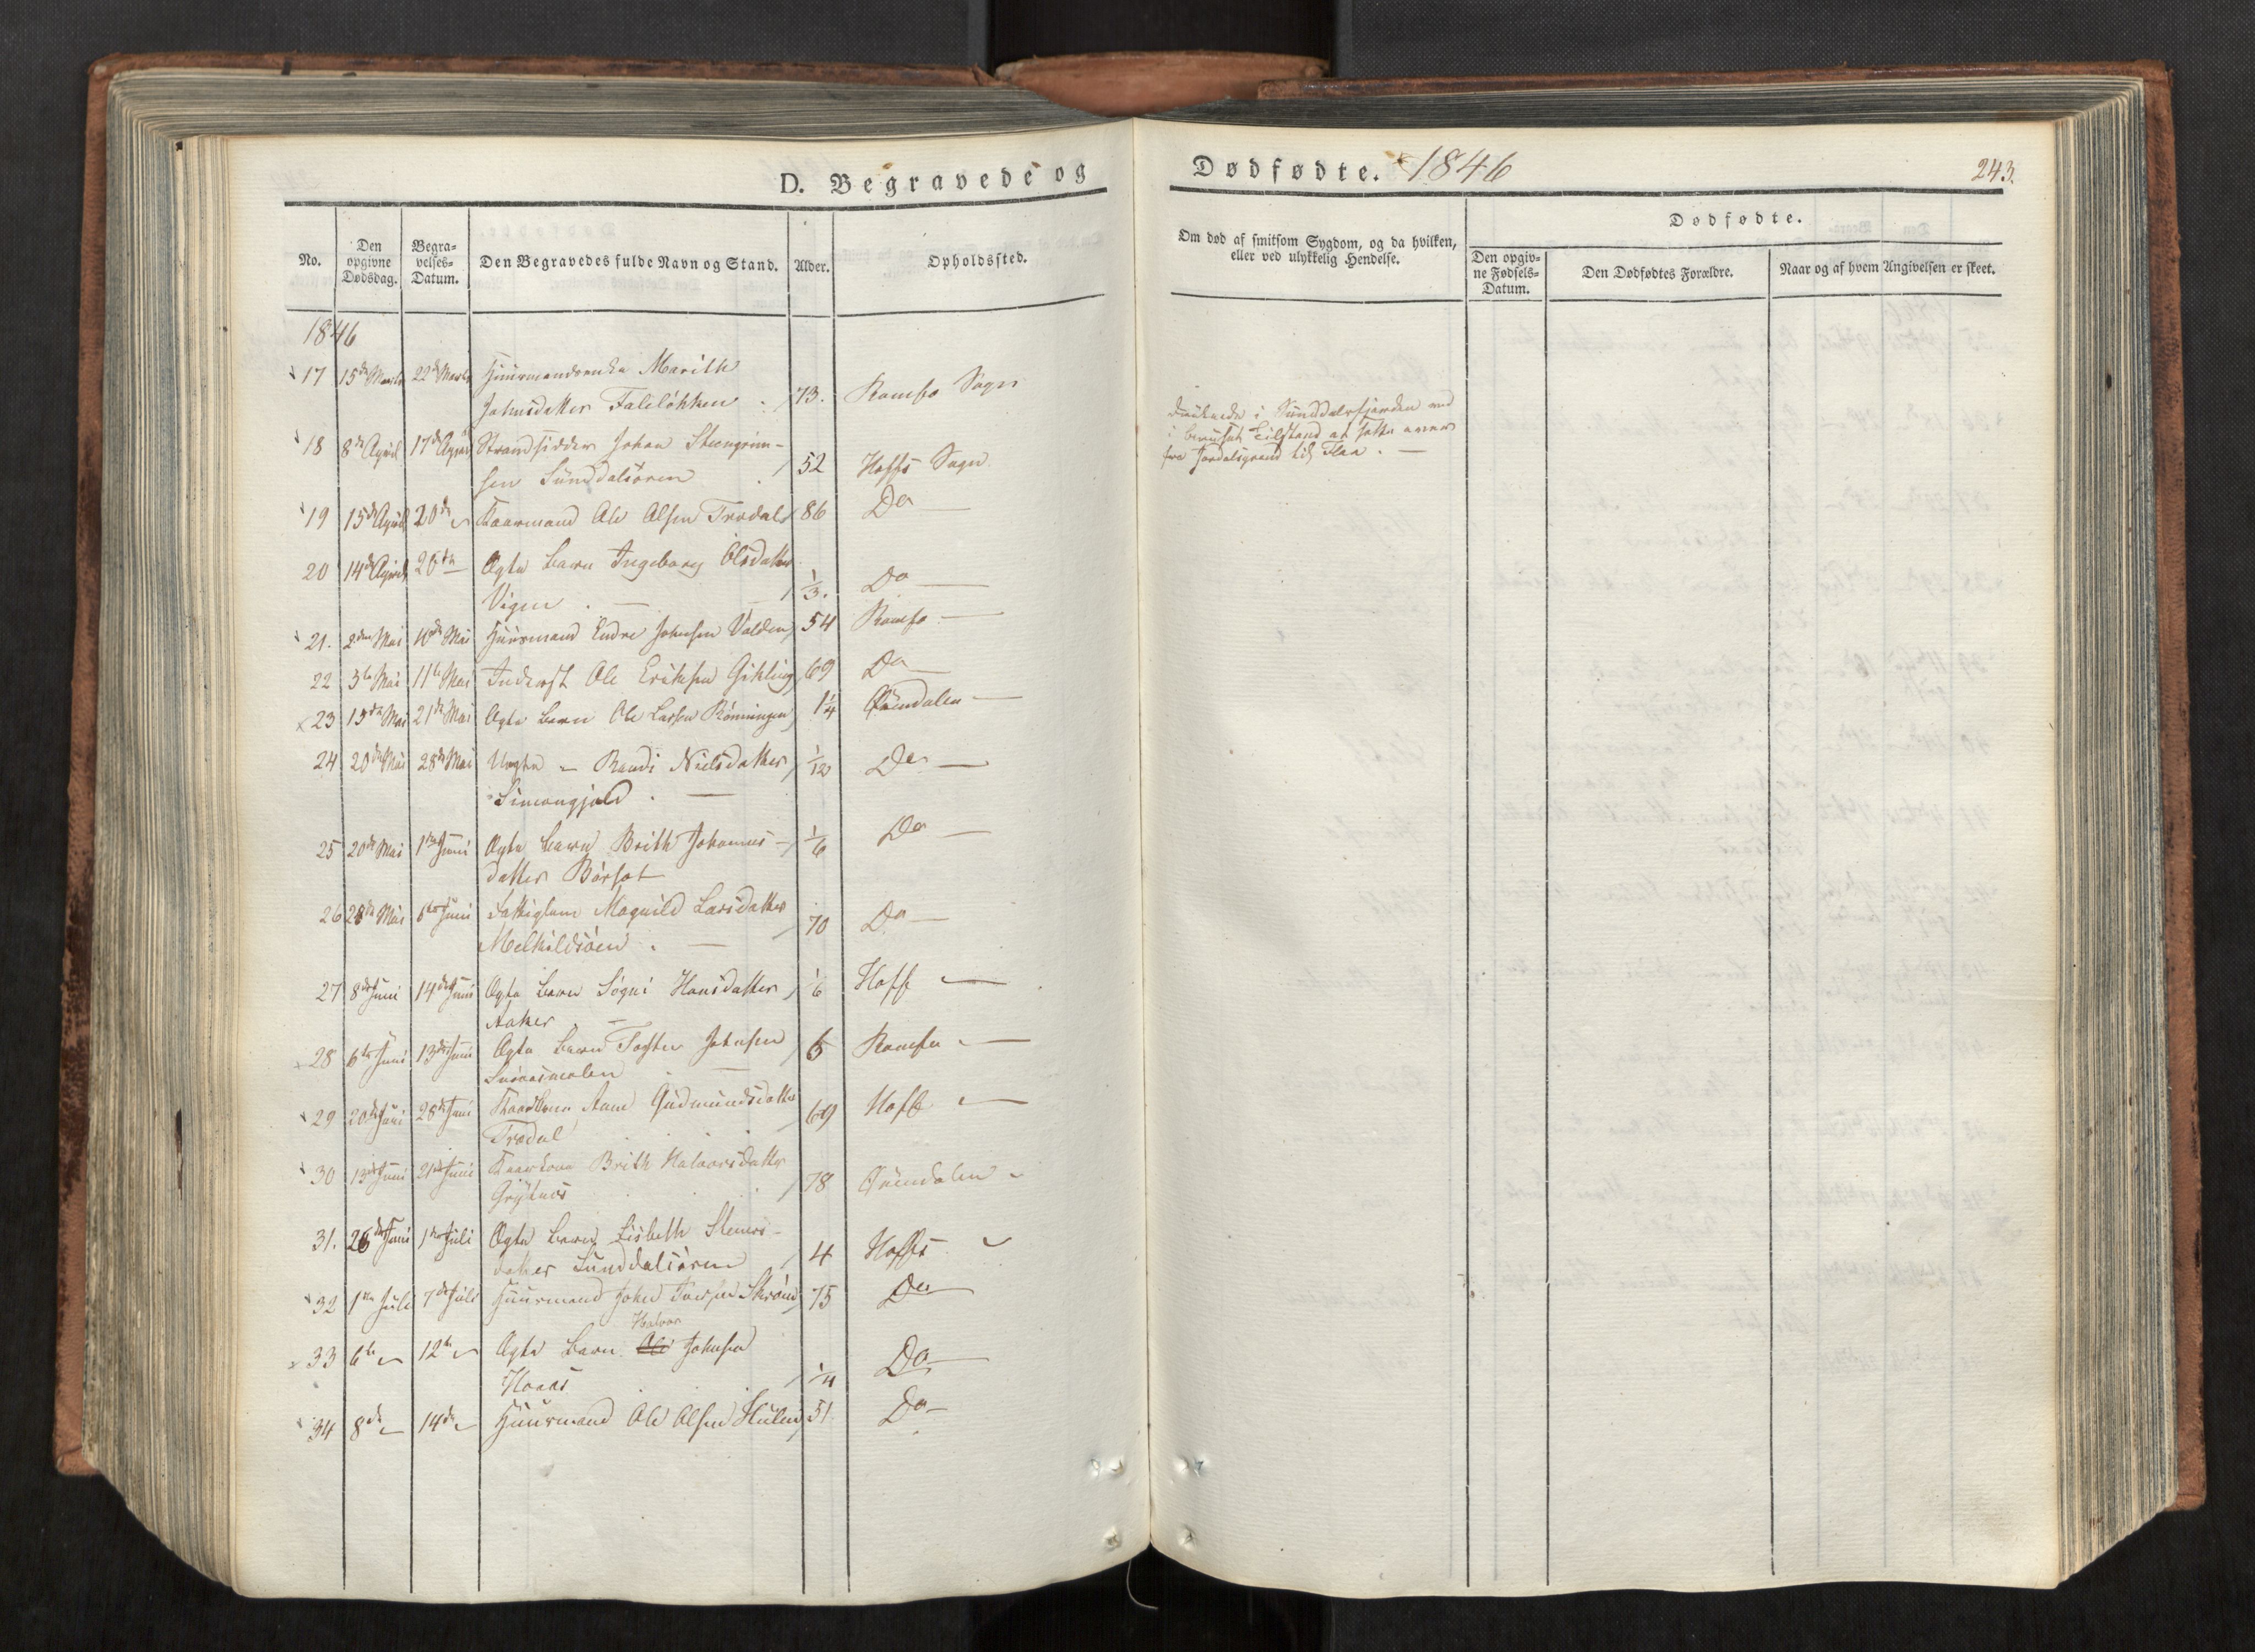 D. Begravede og
Dødfødte. 1846
243.
No.
Den opgivne Dødsdag.
Begravelses-Datum.
Den Begravedes fulde Navn og Stand.
Alder.
Opholdssted.
Om død af smitsom Sygdom, og da hvilken,
eller ved ulykkelig Hendelse.
Dødfødte.
Den opgivne Fødsels-Datum.
Den Dødfødtes Forældre.
Naar og af hvem Angivelsen er skeet.
1846
17 15de Marts 22de Marts Huusmandsenke Marith
Johnsdatter Faleløkken 73. Romfo Sogn
18 8de April 17de April Strandsidder Johan Steengrim-
sen Sunddalsøren 52 Hoffs Sogn
i Sunddalsfjorden ved
i beruset Tilstand at sætte over
fra Jordalsgrend til Flaa. —
19 15de April 20de Kaarmand Ole Olsen Trædal 86 Do —
20 14de April 26de Ægte Barn Ingeborg Olsdatter
Vigen. — 1/3. Do —
21. 2den Mai 10de Mai Huusmand Endre Johnsen Volden 54 Romfo —
22 3die Mai 11te Mai Inderst Ole Eriksen Gikling 69 Do —
23 15de Mai 21de Mai Ægte Barn Ole Larsen Rønningen 1¼ Øxendalen —
24 20de Mai 28de Mai Uægte — Randi Nielsdatter 1/12 Do —
Simongjeld. —
25 20de Mai 1ste Juni Ægte Barn Brith Johannes- 1/6 Do —
datter Børset
26 28de Mai 6te Juni Fattiglem Magnild Larsdatter
Melkildsøen. — 70 Do —
27 8de Juni 14de Juni Ægte Barn Signi Hansdatter 1/6 Hoff —
Aaker. —
28 6te Juni 13de Juni Ægte Barn Johnsen 5 Romfo —
29 20de Juni 28de Juni Kaarkone Ane Gudmundsdatter
Trædal 69 Hoff —
30 13de Juni 21de Juni Kaarkone Brith Halvorsdatter
Grytnes 78 Øxendalen —
31. 26de Juni 1ste Juli Ægte Barn Lisbeth Steners-
datter Sunddalsøren 4 Hoffs —
32 1ste Juli 7de Juli Huusmand John Iversen 75 Do —
Halvor
33 6te — 12te — Ægte Barn Ole Johnsen
Hoaas 1/4 Do —
34 8de — 14de — Huusmand Ole Olsen Hulen 51 Do —